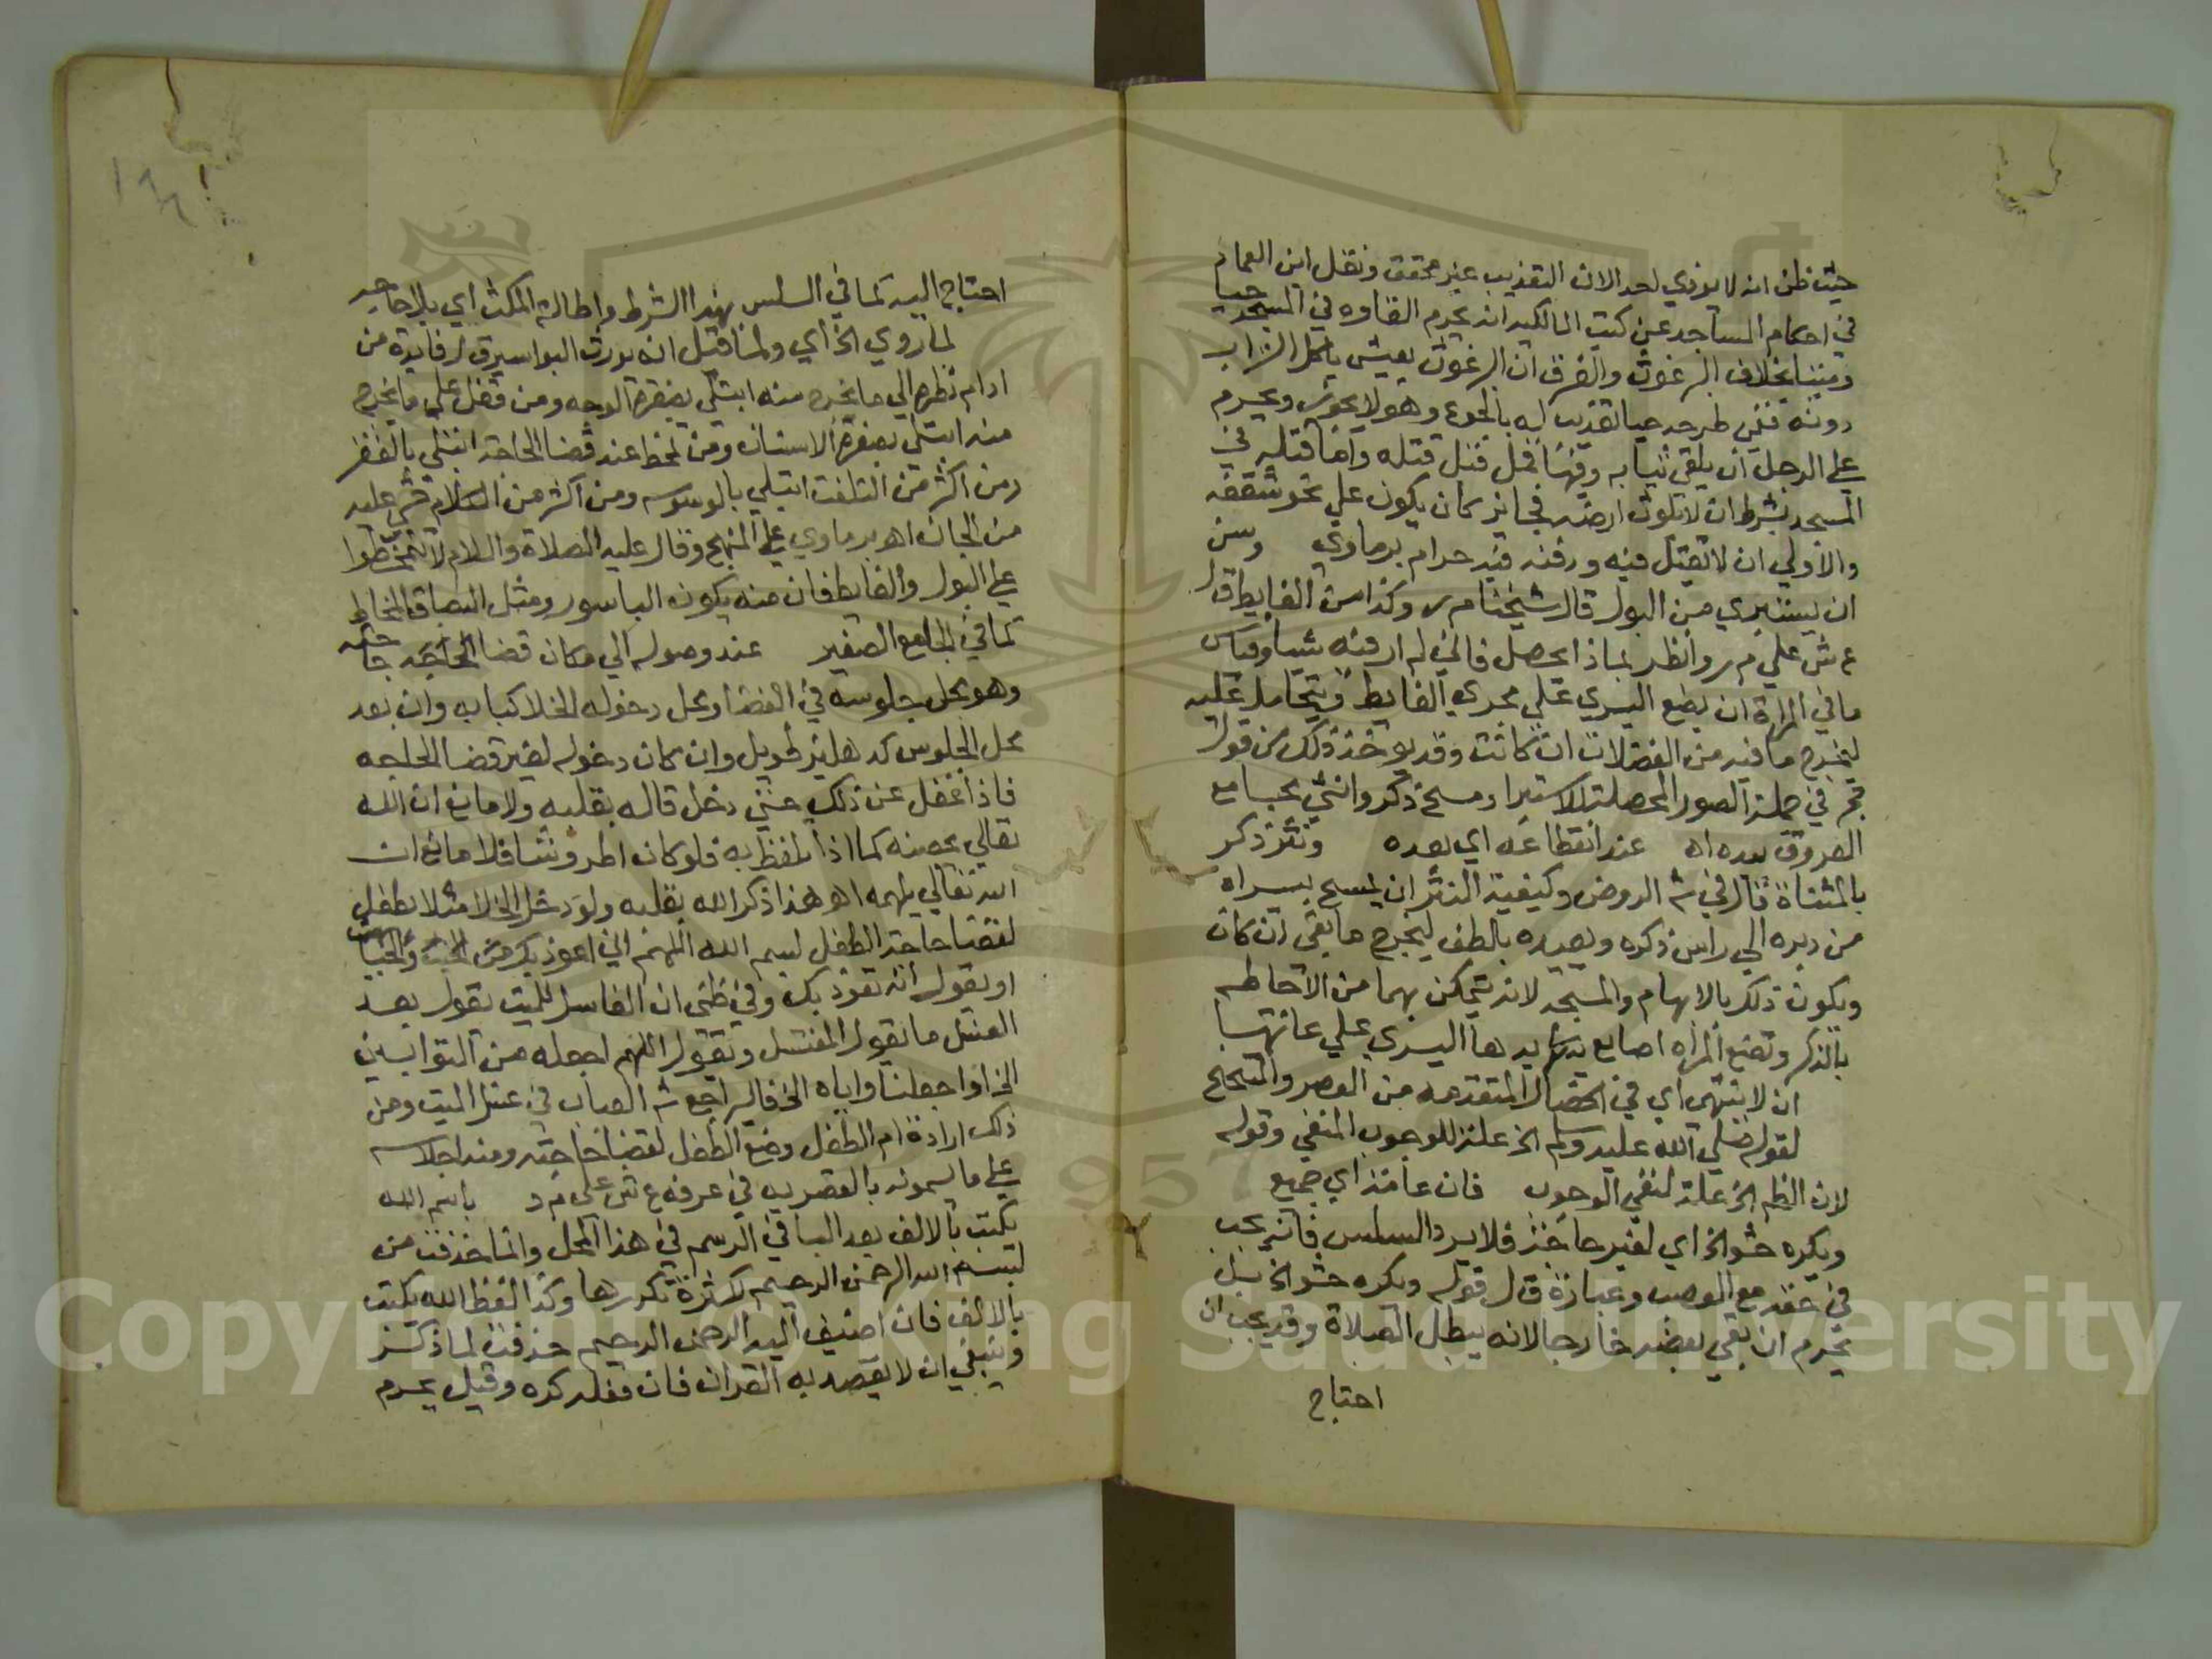 حيث ظن انه لا يوذي لحد الان التعذيب غير محقق ونقل ابن العماد
في احكام المساجد عن كتب المالكيه انه يحرم القاوه في المسجد حيا
وميتا بخلاف البرغوث والفرق ان البرغوث يعيش باكل التراب
دونه ففي طرحه حيا تعذيب له بالجوع وهو لا يجوز ويحرم
علي الرجل ان يلقي ثيابه وفيها قمل قبل قتله واما قتله في
المسجد بشرط ان لا تلوث ارضه فجايز كان يكون علي نحو شقفه
والاولي ان لا يقتل فيه ودفنه فيه حرام برماوي وسن
ان يستبري من البول قال شيخنا م ر وكذا من الغايط قال
ع ش علي م ر وانظر بماذا يحصل فاني لم ار فيه شيا وقياس
ما في المراة ان يضع اليسري علي مجري الغايط ويتحامل عليه
ليخرج ما فيه من الفضلات ان كانت وقد يوخذ ذلك من قول
حجر في جملة الصور المحصلة للاستبراء ومسح ذكر وانثي مجامع
العروق بيده اه عند انقطاعه اي بعده ونتر ذكر
بالمثناة قال في ش الروض وكيفية النتر ان يمسح بيسراه
من دبره الي راس ذكره وبعيده بالطف ليخرج ما بقي ان كان
ويكون ذلك بالابهام والمسبحه لانه يتمكن بهما من الاحاطه
بالذكر وتضع المراه اصابع يدها اليسري علي عانتها
ان لا ينتهي اي في الخصال المتقدمه من العصر والتنحنح
لقوله صلي الله عليه وسلم الخ علة للوجوب المنفي وقوله
لان الظاهر الخ علة لنفي الوجوب فان عامة اي جميع
ويكره حشو الخ اي لغير حاجة فلا يرد السلس فانه يجب
في حقه مع العصب وعبارة ق ل قوله ويكره حشو الخ بل
يحرم ان بقي بعضه خارجا لانه يبطل الصلاة وقد يجب ان
احتاج
احتاج اليه كما في السلس بهذا الشرط واطالة المكث اي بلا حاجه
لما روي الخ اي ولما قيل انه يورث البواسير ق ل فايدة من
ادام نظره الي ما يخرج منه ابتلي بصفرة الوجه ومن تفل علي ما يخرج
منه ابتلي بصفرة الاسنان ومن تمخط عند قضا الحاجة ابتلي بالفقر
ومن اكثر من التلفت ابتلي بالوسوسه ومن اكثر من الكلام خشي عليه
من الجان اهو برماوي علي المنهج وقال عليه الصلاة والسلام لا تمخطوا
علي البول والغايط فان منه يكون الباسور ومثل البصاق المخاط
كما في الجامع الصغير عند وصوله الي مكان قضا الحاجه حاجته
وهو محل جلوسه في الفضا ومحل دخوله الخلا كبابه وان بعد
محل الجلوس كدهليز طويل وان كان دخوله لغير قضا الحاجه
فاذا غفل عن ذلك حتي دخل قاله بقلبه ولا مانع ان الله
تعالي يحصنه كما اذا تلفظ به فلو كان اطروشا فلا مانع ان
الله تعالي يلهمه اهو هذا ذكر الله بقلبه ولو دخل الخلا مثلا بطفل
لقضا حاجة الطفل بسم الله اللهم اني اعوذ بك من الخبث والخبايث
او يقول انه يعوذ بك وفي ظني ان الغاسل للميت يقول بعد
الغسل ما يقول المغتسل ويقول اللهم اجعله من التوابين
الخ او اجعلنا واياه الخ فاليراجع ش العباب في غسل الميت ومن
ذلك ارادة ام الطفل وضع الطفل لقضا حاجته ومنه اجلاسه
علي ما يسمونه بالقصريه في عرفه ع ش علي م ر باسم الله
يكتب بالالف بعد البا في الرسم في هذا المحل وانما حذفت من
بسم الله الرحمن الرحيم لكثرة تكررها وكذا لفظ الله يكتب
بالالف فان اضيف اليه الرحمن الرحيم حذفت لما ذكر
وينبغي ان لا يقصد به القران فان فعله كره وقيل يحرم
Copyright © King Saud University
1957